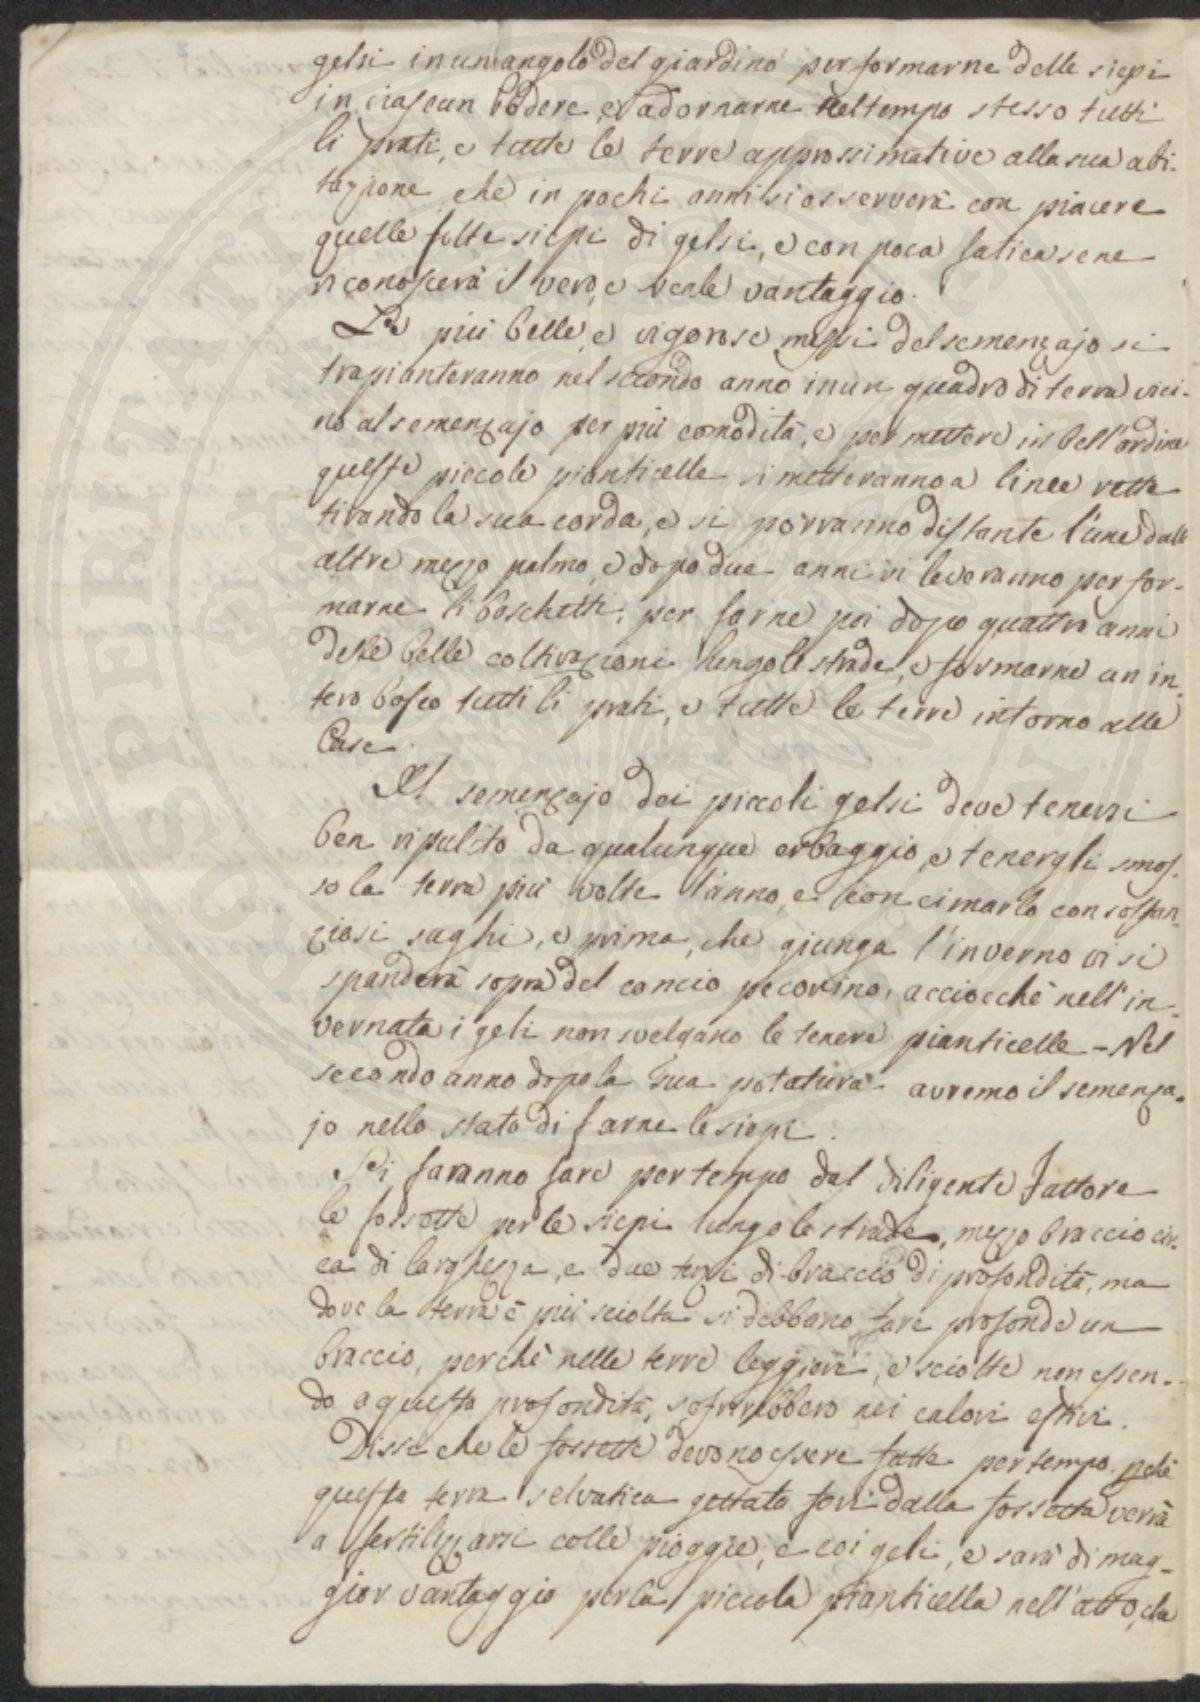 gelsi in un angolo del giardino per formarne delle siepi
in ciascun Podere, e adornarne nel tempo stesso tutti
li prati, e tutte le terre approssimative alla sua abi-
tazione che in pochi anni si osserverà con piacere
quelle folte siepi di gelsi, e con poca fatica se ne
riconoscerà il vero, e reale vantaggio.
Le più belle, e vigorose messi del semenzajo si
trapianteranno nel secondo anno in un quadro di terra vici-
no al semenzajo per più comodità, e per mettere in bell'ordine
queste piccole pianticelle si metteranno a linee rette
tirando la sua corda, e si porranno distante l'une dalle
altre mezzo palmo, e dopo due anni si leveranno per for-
marne li boschetti, per farne poi dopo quattro anni
delle belle coltivazioni lungo le strade, e formarne un in-
tero bosco tutti li prati, e tutte le terre intorno alle
Case.
Il semenzajo dei piccoli gelsi deve tenersi
ben ripulito da qualunque erbaggio, e tenergli smos-
so la terra più volte l'anno, e concimarlo con sostan-
ziosi sughi, e prima, che giunga l'inverno vi si
spanderà sopra del concio pecorino, acciocchè nell'in-
vernata i geli non svelgano le tenere pianticelle - Nel
secondo anno dopo la sua potatura avremo il semenza-
jo nello stato di farne le siepi.
Si faranno fare per tempo dal diligente Fattore
le fossette per le siepi lungo le strade, mezzo braccio cir-
ca di larghezza, e due terzi di braccio di profondità, ma
dove la terra è più sciolta si debbano fare profonde un
braccio, perchè nelle terre leggiere, e sciolte non essen-
do a questa profondità, soffrirebbero nei calori estivi.
Disse che le fossette devono essere fatte per tempo, pchè
questa terra selvatica gettata fori dalla fossetta verrà
a fertilizzarsi colle pioggie, e coi geli, e sarà di mag-
gior vantaggio per la piccola pianticella nell'atto, che
OSPERITATI